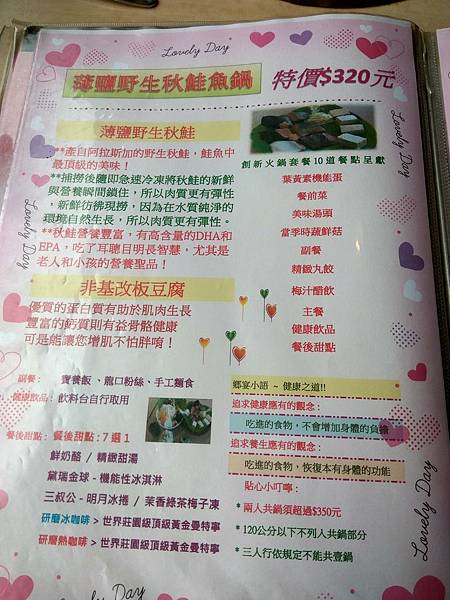 Lovely Day
薄鹽野生秋鮭魚鍋 特價$320元
薄鹽野生秋鮭
**產自阿拉斯加的野生秋鮭，鮭魚中
最頂級的美味！
**捕撈後隨即急速冷凍將秋鮭的新鮮
與營養瞬間鎖住，所以肉質更有彈性
，新鮮彷彿現撈，因為在水質純淨的
環境自然生長，所以肉質更有彈性。
**秋鮭營養豐富，有高含量的DHA和
EPA，吃了耳聰目明長智慧，尤其是
老人和小孩的營養聖品！
非基改板豆腐
優質的蛋白質有助於肌肉生長
豐富的鈣質則有益骨骼健康
可是能讓您增肌不怕胖唷！
創新火鍋套餐10道餐點呈獻
葉黃素機能蛋
餐前菜
美味湯頭
當季時蔬鮮菇
副餐
精緻丸餃
梅汁醋飲
主餐
健康飲品
餐後甜點
Lovely Day
Lovely Day
副餐： 寶餐飯、龍口粉絲、手工麵食
健康飲品： 飲料台自行取用
餐後甜點： 餐後甜點：7 選 1
鮮奶酪 / 精緻甜湯
黛瑞金球 - 機能性冰淇淋
三叔公 - 明月冰捲 / 茉香綠茶梅子凍
研磨冰咖啡 > 世界莊園級頂級黃金曼特寧
研磨熱咖啡 > 世界莊園級頂級黃金曼特寧
鄉宴小語 ~ 健康之道!!
追求健康應有的觀念：
吃進的食物，不會增加身體的負擔
追求養生應有的觀念：
吃進的食物，恢復本有身體的功能
貼心小叮嚀：
* 兩人共鍋須超過$350元
* 120公分以下不列人共鍋部分
* 三人行依規定不能共壹鍋
Lovely Day
Lovely Day